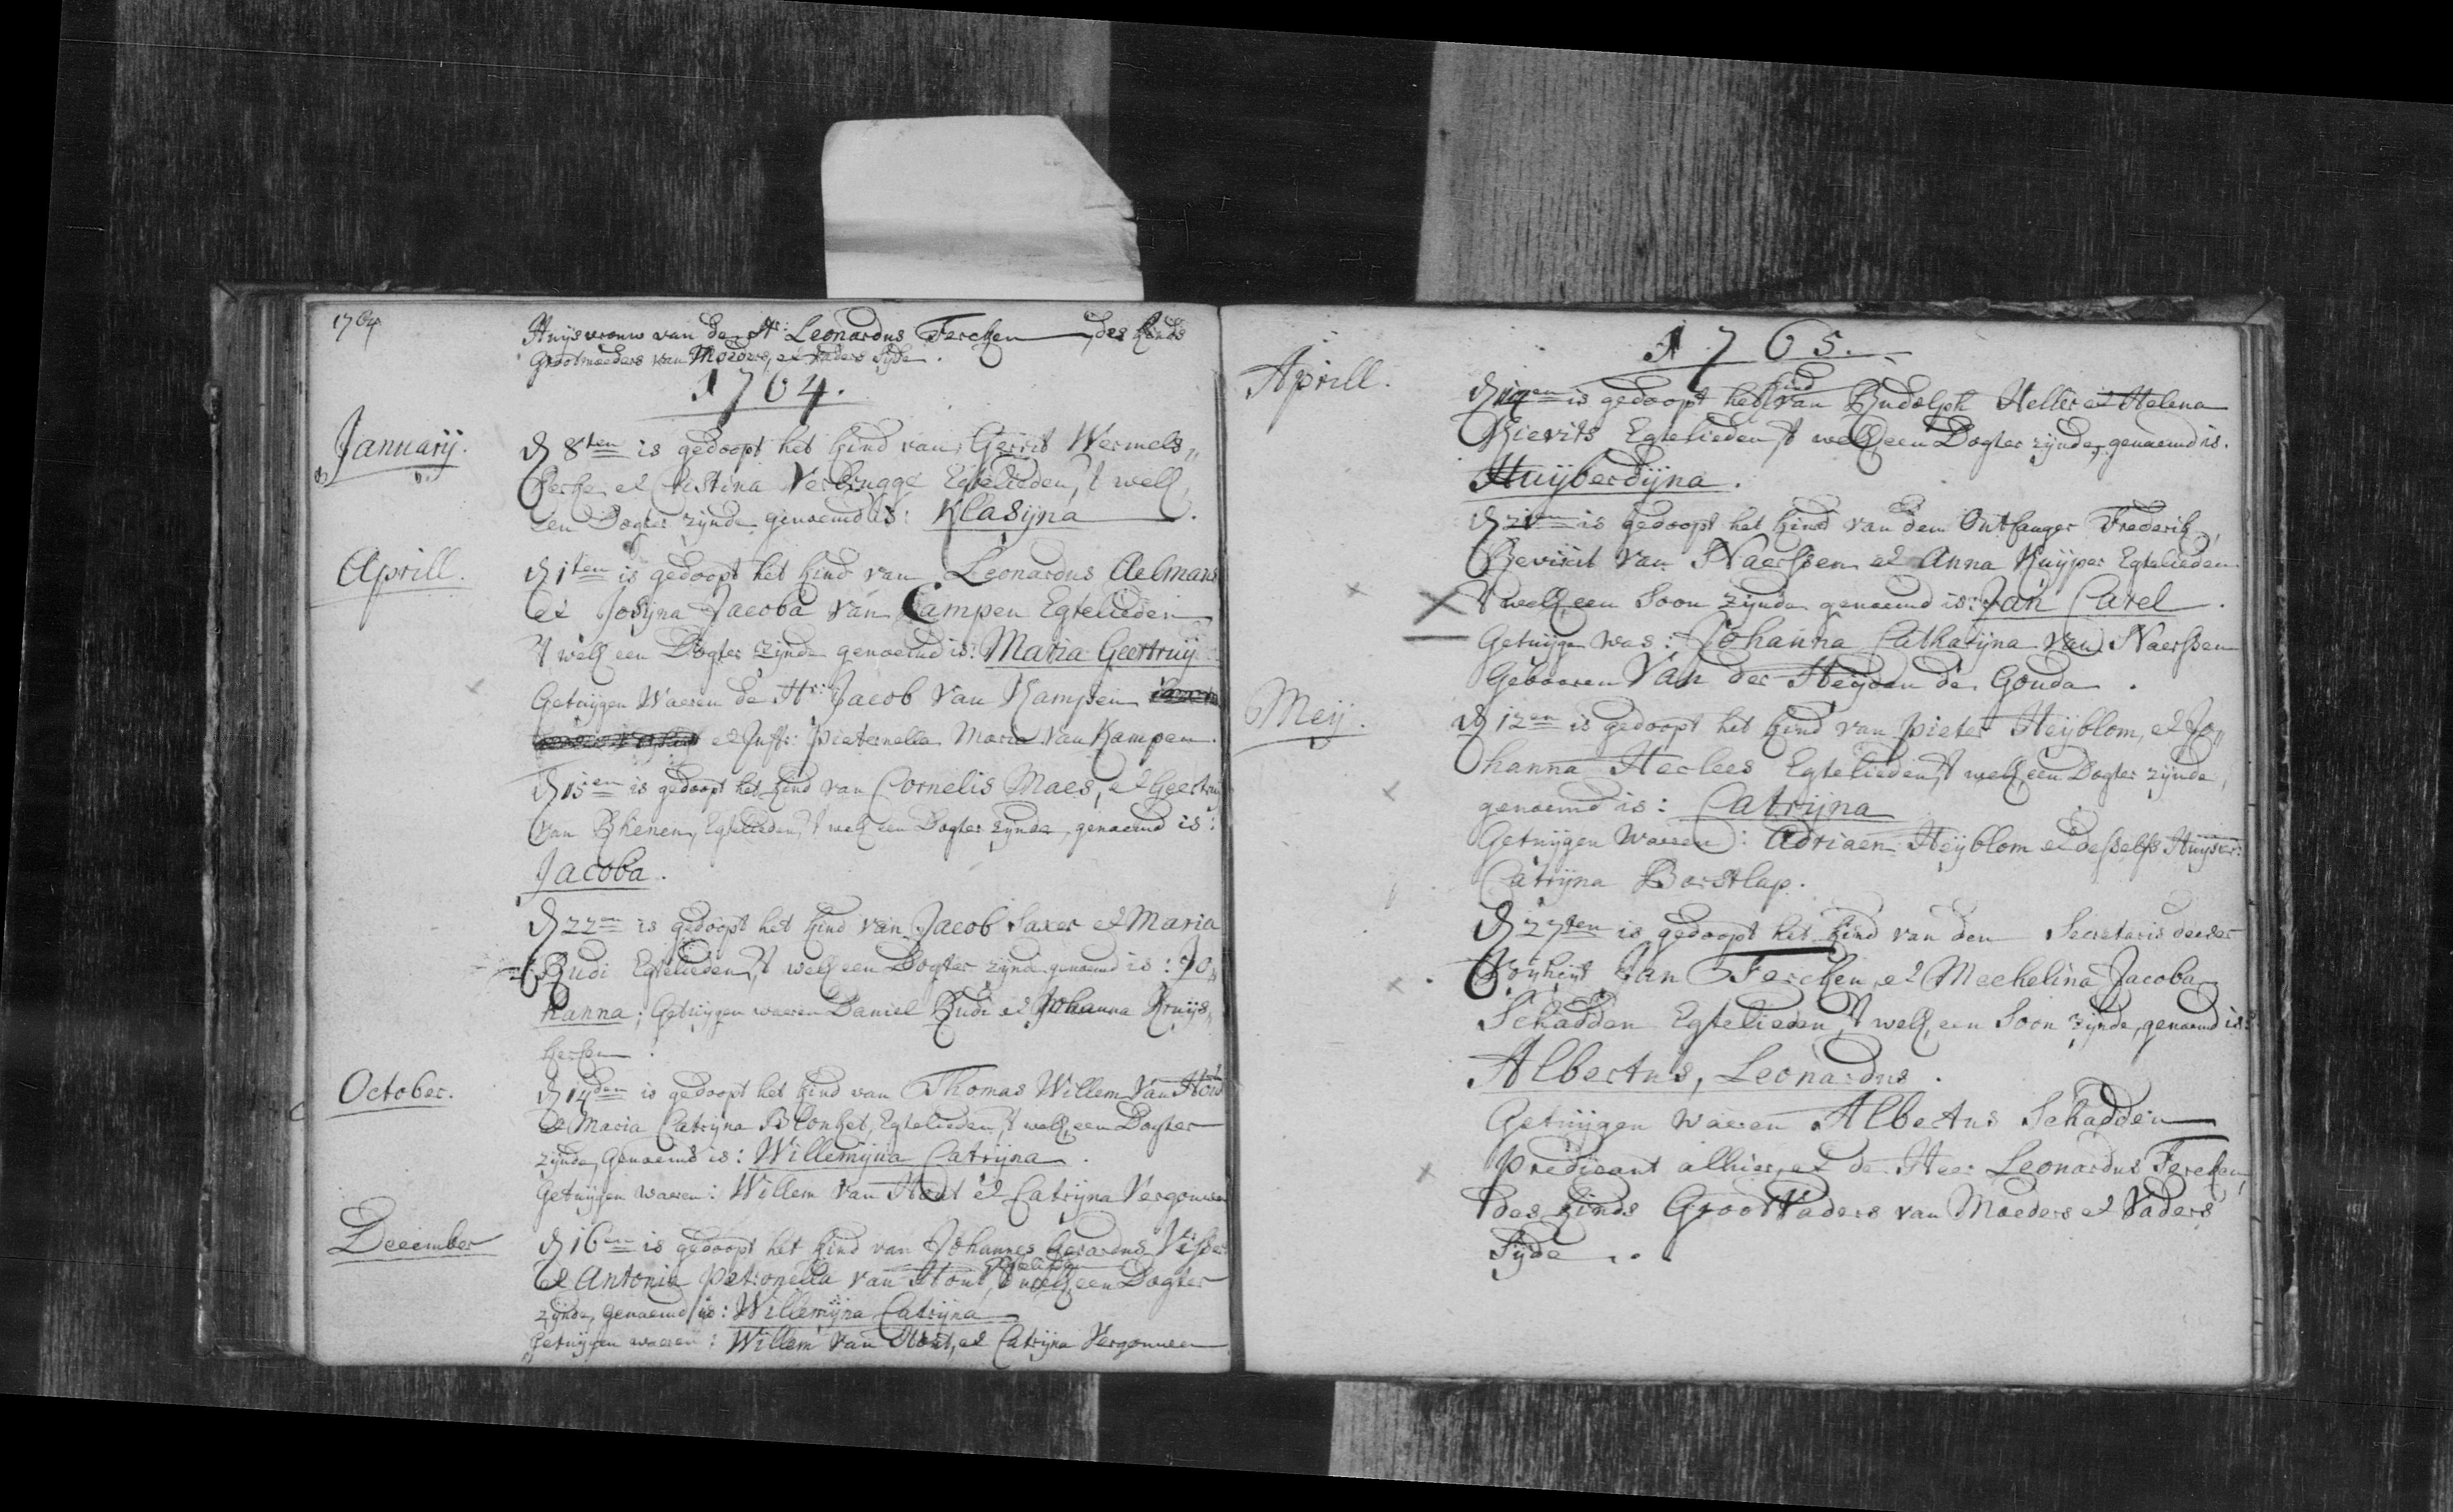 1764
Huijsvrouw van den Hr: Leonardus Ferchen, des Kinds
Grootmoeders van Moeders, et Vaders Syde.
1764.
January.
D 8ten is gedoopt het Kind van Gerrit Wermels„
kerke et Cristina Verbrugge Egtelieden, 't welk
een Dogter zijnde genoemd is: Klasijna.
Aprill.
D 1ten is gedoopt het Kind van Leonardus Aelmans
et Josyna Jacoba Van Campen Egtelieden
't welk een Dogter zijnde genoemd is: Maria Geertruij
Getuijgen Waeren de Hr: Jacob Van Kampen
et Juffr: Pieternella Maria Van Kampen.
D 15en is gedoopt het Kind van Cornelis Maes, et Geertruij
Van Rhenen, Egtelieden, 't welk een Dogter zijnde, genaemd is:
Jacoba.
D 22en is gedoopt het Kind van Jacob Saxer et Maria
Rudi Egtelieden, 't welk een Dogter zijnde genaemd is: Jo„
hanna; Getuijgen waeren Daniel Rudi et Johanna Kruijs„
October.
D 14den is gedoopt het Kind van Thomas Willem Van Hout
et Maria Catrijna Blonket, Egtelieden, 't welk een Dogter
zijnde, Genaemd is: Willemijna Catrijna.
Getuijgen waeren: Willem Van Hout et Catrijna Vergouwen
December
D 16en is gedoopt het Kind van Johannes Gerardus Visser
Egtelieden
et Antonia Petronella van Hout, 't welk een Dogter
zijnde, genaemd is: Willemijna Catrijna
Getuijgen waeren: Willem Van Hout, et Catrijna Vergouwen
1765.
Aprill.
Kind
D 14en is gedoopt het van Rudolph Heller et Helena
Kievits Egtelieden, 't welk een Dogter zijnde, genaemd is.
Huijberdijna.
D 21en is gedoopt het Kind van den Ontfanger Frederik
Van Naerssen et Anna Kuyper Egtelieden
't welk een Soon zijnde genaemd is: Jan Carel.
Getuijge was: Johanna Catharijna Van Naerssen
Gebooren Van der Heyden de Gouda.
Meij.
D 12en is gedoopt het Kind van Pieter Heijblom, et Jo„
hanna Heclees Egtelieden, 't welk een Dogter zijnde,
genaemd is: Catrijna
Getuijgen Waeren: Adriaen Heijblom et desselfs Huijsvr:
Catrijna Borstlap.
D 27sten is gedoopt het Kind van den Secretaris deeser
Jan Ferchen, et Mechelina Jacoba
Schadden Egtelieden, 't welk een Soon zijnde, genaemd is:
Albertus, Leonardus.
Getuijgen waeren Albertus Schadden
Predicant alhier, et de Heer Leonardus Ferchen,
Des Kinds GrootVaders van Moeders et Vaders
Syde.